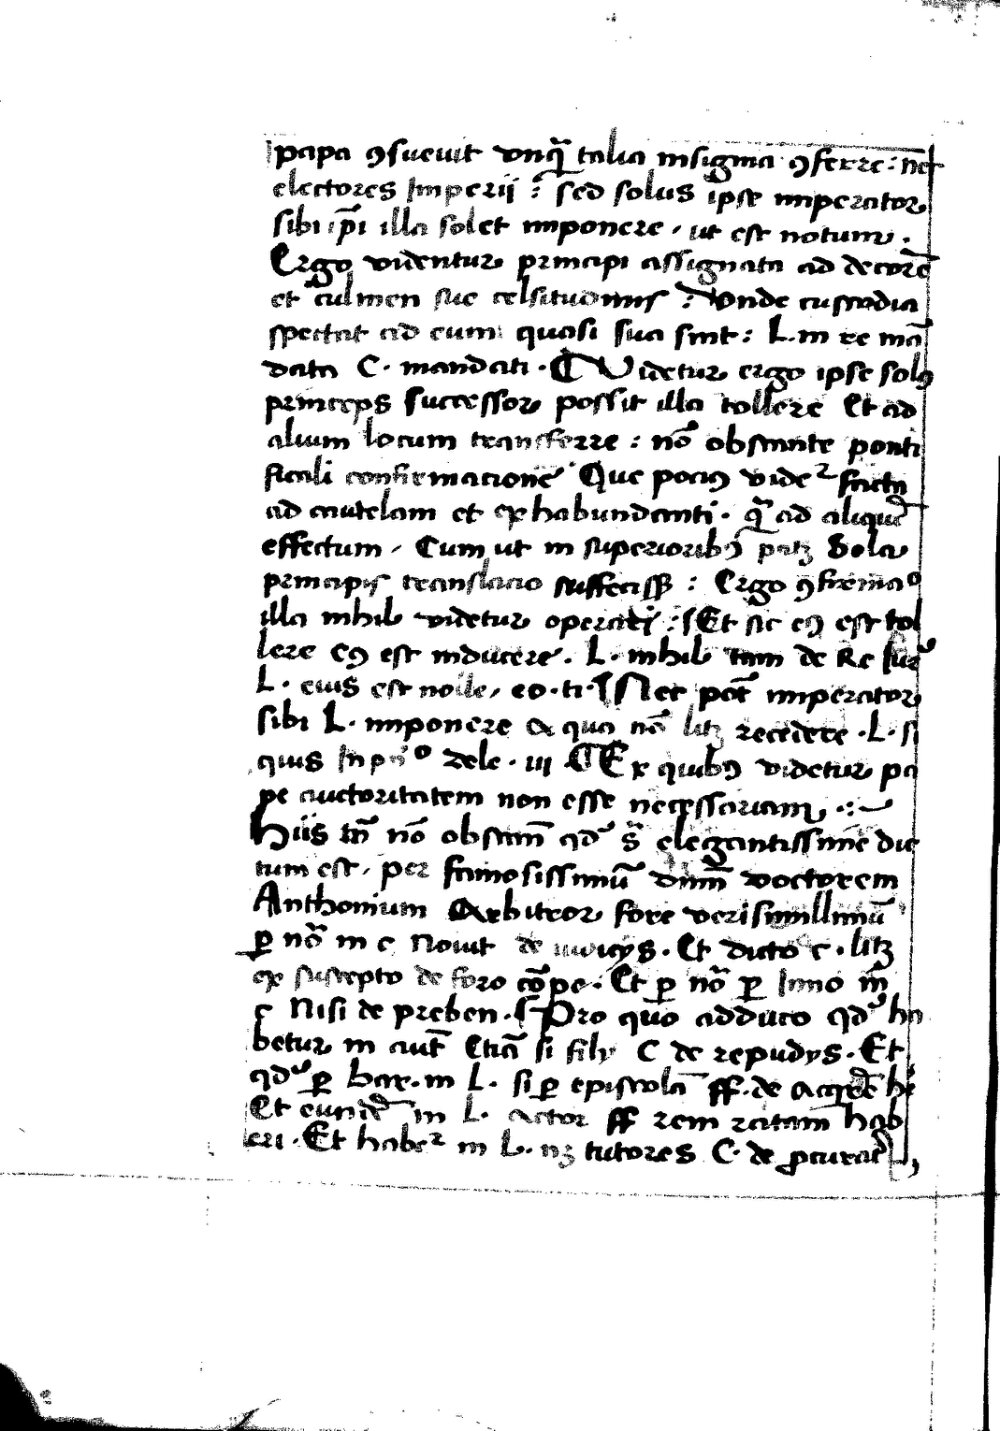 papa ꝯsuevit vnqᷓ talia insignia ꝯferre : nec
electores Imperii : sed solus ipse imperator
sibi ip̄i illa solet imponere , ut est notum .
Ergo videntur principi assignata ad decorē
et culmen sue celsitudinis : Vnde custodia
spectat ad eum quasi sua sint : L. in re mā
data C. mandati . Videtur ergo ipse solꝰ
princeps successor possit illa tollere Et ad
alium locum transferre : nō obstante ponti
ficali confirmacione Que pociꝰ videʳ facta
ad cautelam et ex habundanti . qᷓ ad aliquē
effectum , Cum ut in superioribꝰ patꝫ Sola
principis translacio suffecisset : Ergo ꝯfirmaᵒ
illa nihil videtur operari : Et sic eiꝰ est tol
lere eiꝰ est inducere . L. nihil tam de Re iur̄
L. eius est nolle , eo . ti . Nec pōt imperator
sibi L. imponere a qua nō litꝫ recedere . L. si
quis In pnͥᵒ dele . iii . Ex quibꝰ videtur pa
pe auctoritatem non esse necessariam .
Hiis tn̄ nō obstan̄ qdͥ sᷓ elegantissime dic
tum est , per famosissimū dn̄m doctorem
Anthonium Arbitror fore verisimillimū
ꝑ nōᷓ in c Novit de iudicijs . Et dicto c . litꝫ
ex suscepto de foro cōpe . Et ꝑ nōᷓ ꝑ Inno in̄
c Nisi de preben . Pro quo adduco qdͥ ha
betur in aut̄ Etiā si filij C de repudijs . Et
qdͥ ꝑ Bar . in L. si ꝑ epistolā ff. de acqrē he
Et eundē in L. actor ff rem ratam hab
eri . Et habeʳ in L. nꝫ tutores C. de ꝓcurat̄